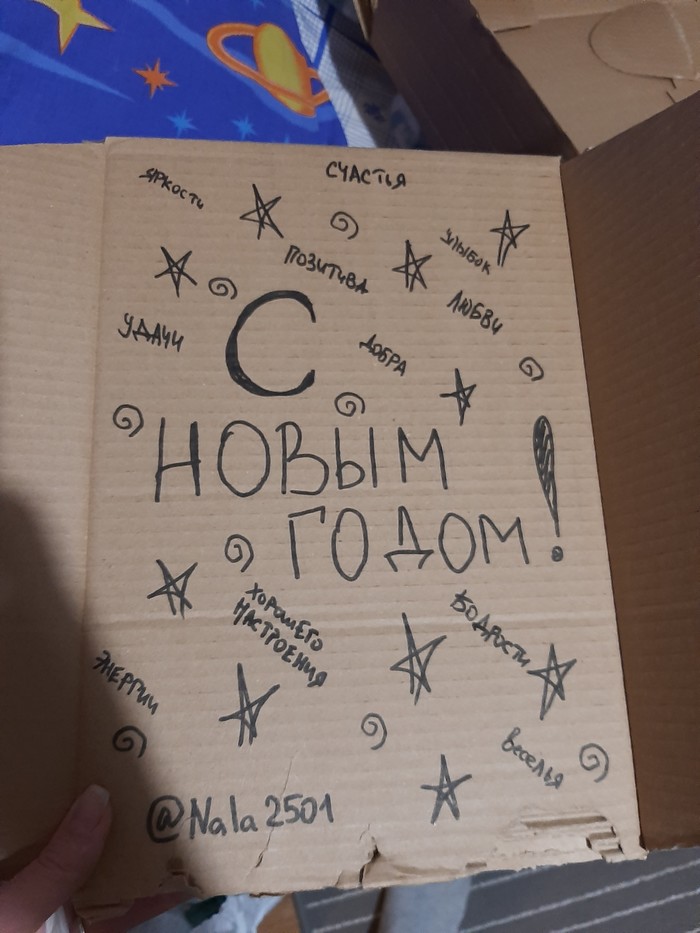 СЧАСТЬЯ
ЯРКОСТИ
УЛЫБОК
ПОЗИТИВА
ЛЮБВИ
УДАЧИ
ДОБРА
С
НОВЫМ
ГОДОМ!
ХОРОШЕГО
НАСТРОЕНИЯ
БОДРОСТИ
ЭНЕРГИИ
Веселья
@Nala2501